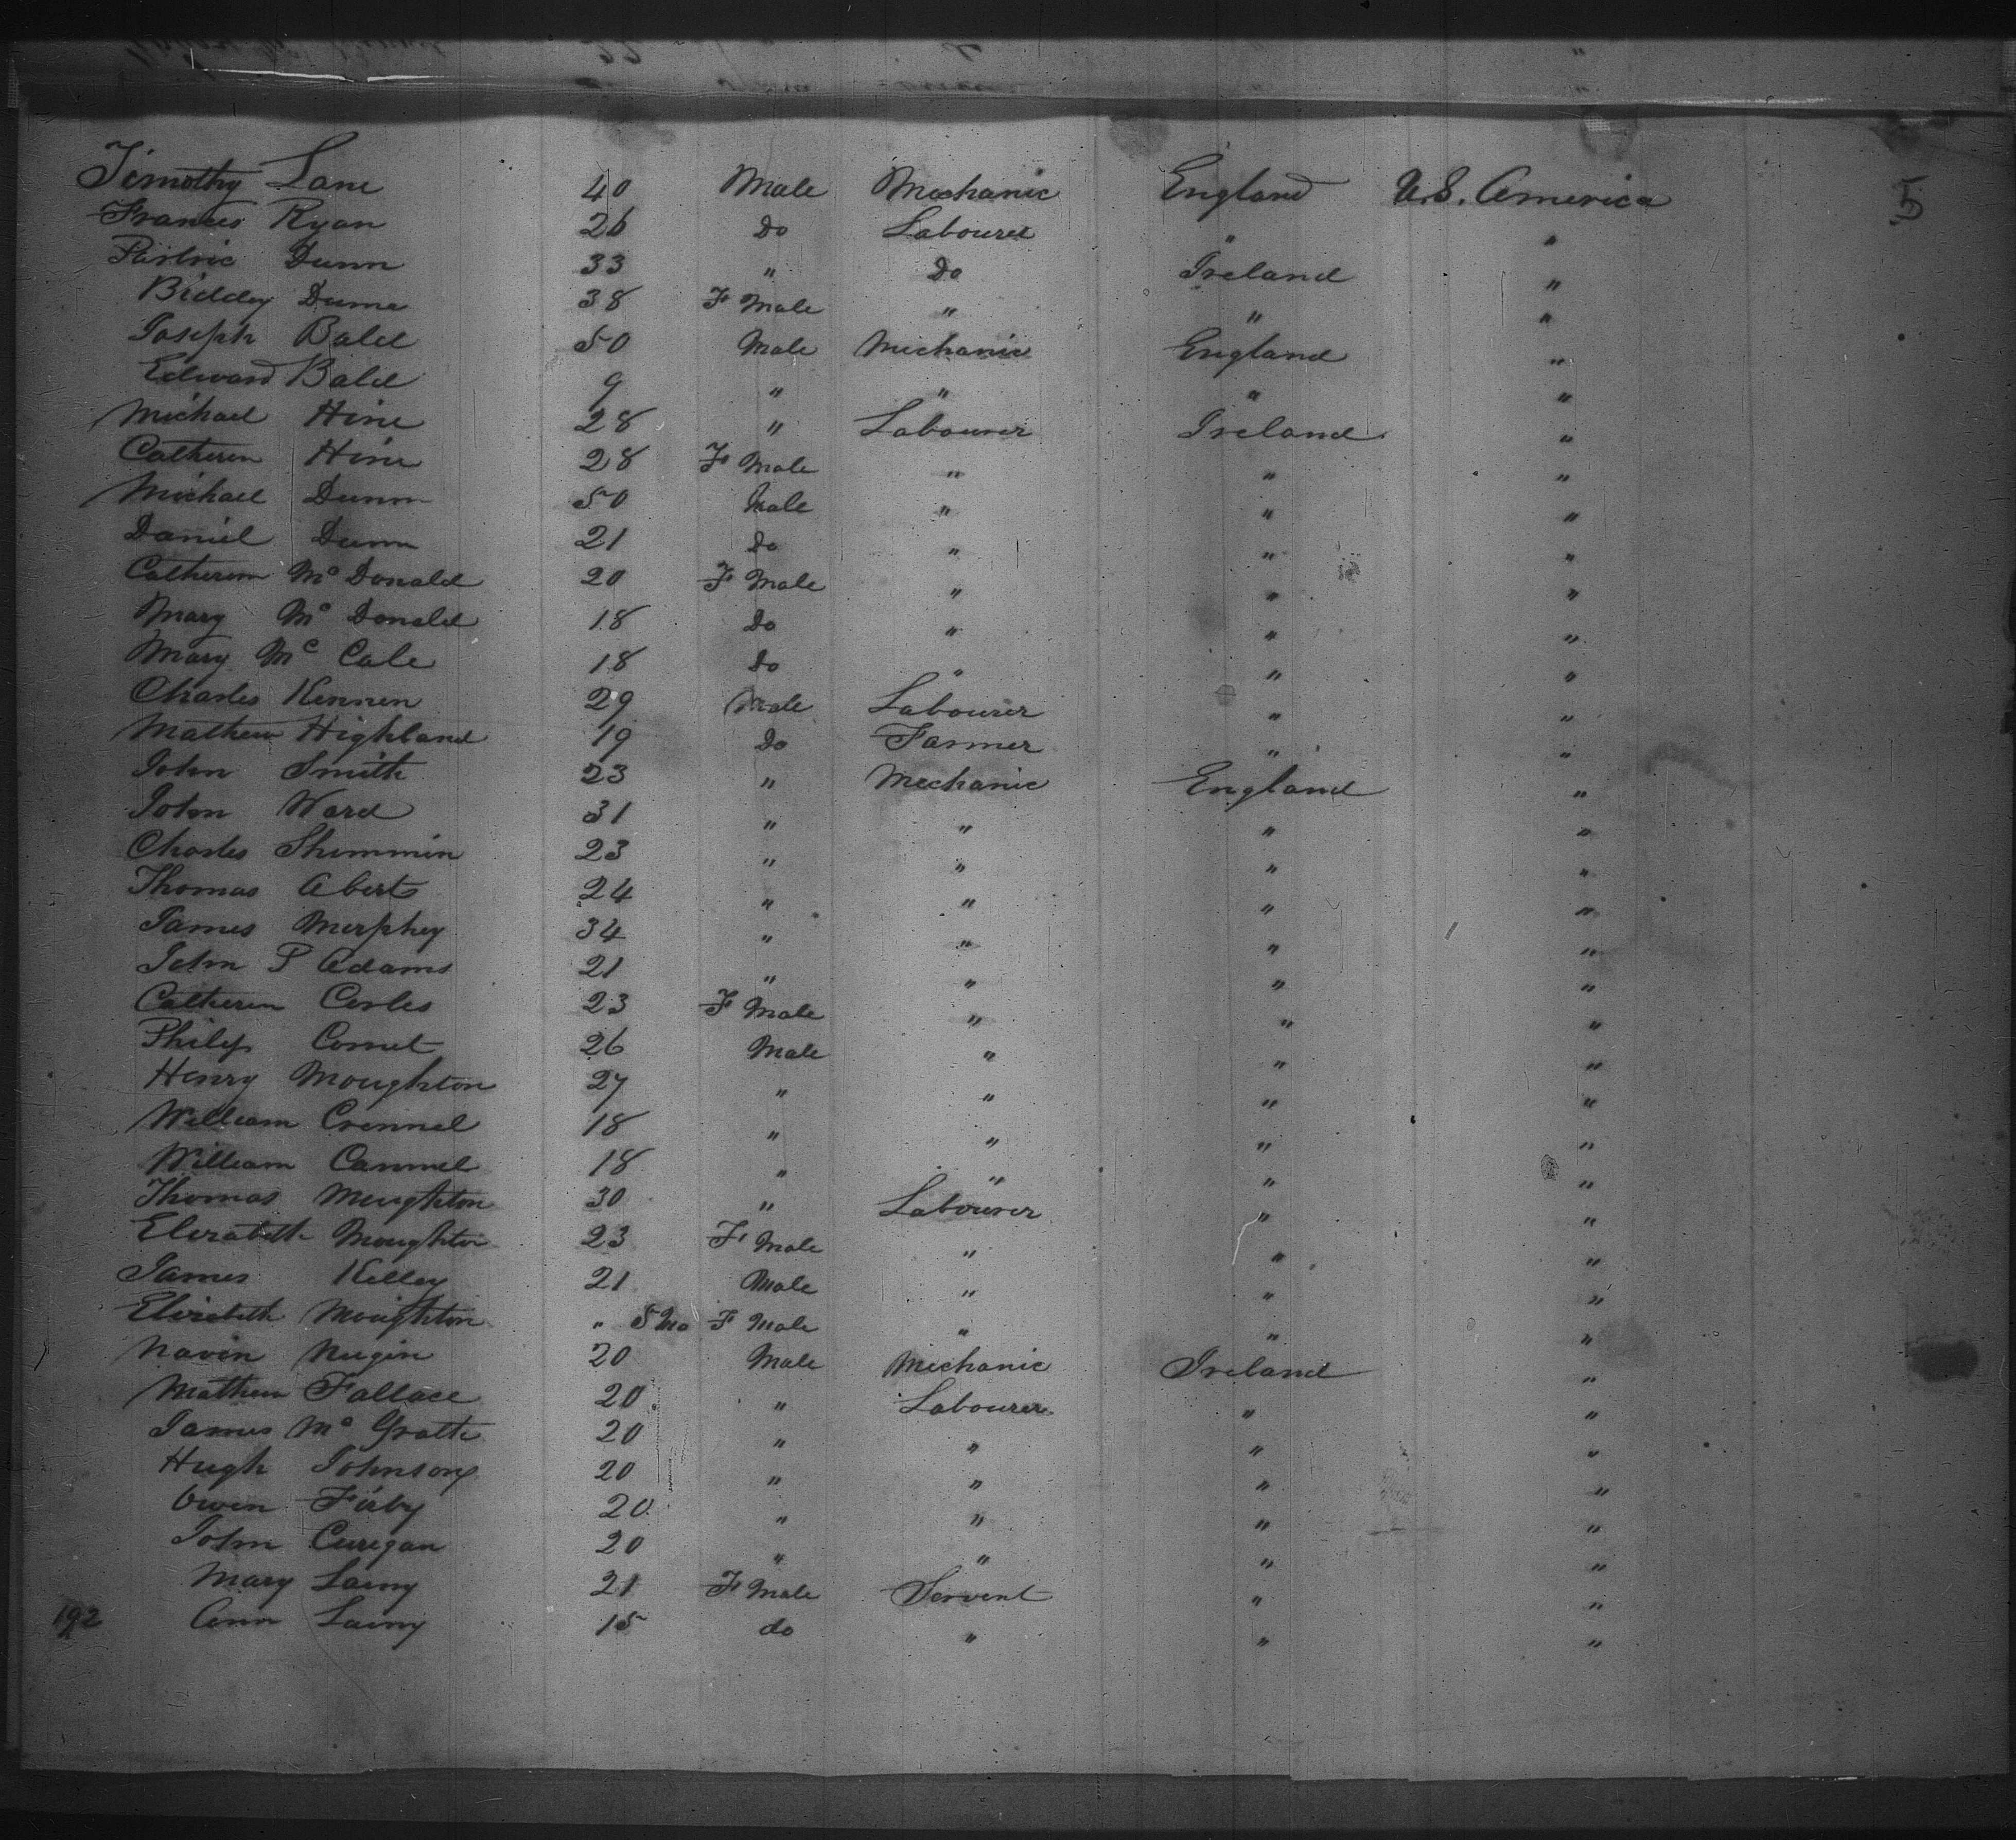 Timothy Lane 40 Male Mechanic England U.S. America 5
Frances Ryan 26 Do Labourer " "
Patric Dunn 33 " Do Ireland "
Biddey Dunn 38 F Male " " "
Joseph Bald 50 Male Mechanic England "
Edward Bald 9 " " " "
Michael Hine 28 " Labourer Ireland "
Catheren Hine 28 F Male " " "
Michael Dunn 50 Male " " "
Daniel Dunn 21 Do " " "
Catheren Mc Donald 20 F Male " " "
Mary Mc Donald 18 Do " " "
Mary Mc Cale 18 Do " " "
Charles Kennen 29 Male Labourer " "
Mathew Highland 19 Do Farmer " "
John Smith 23 " Mechanic England "
John Ward 31 " " " "
Charles Shimmin 23 " " " "
Thomas Aberts 24 " " " "
James Merphey 34 " " " "
John P Adams 21 " " " "
Catheren Corles 23 F Male " " "
Philip Cornet 26 Male " " "
Henry Moughton 27 " " " "
William Crennel 18 " " " "
William Cannel 18 " " " "
Thomas Moughton 30 " Labourer " "
Elizabeth Moughton 23 F Male " " "
James Kelley 21 Male " " "
Elizabeth Moughton " 8 Mo F Male " " "
Navin Nugin 20 Male Mechanic Ireland "
Mathew Fallace 20 " Labourer " "
James Mc Gratte 20 " " " "
Hugh Johnson 20 " " " "
Owen Firby 20 " " " "
John Curigan 20 " " " "
Mary Lamy 21 F Male Servent " "
192 Ann Lamy 15 do " " "